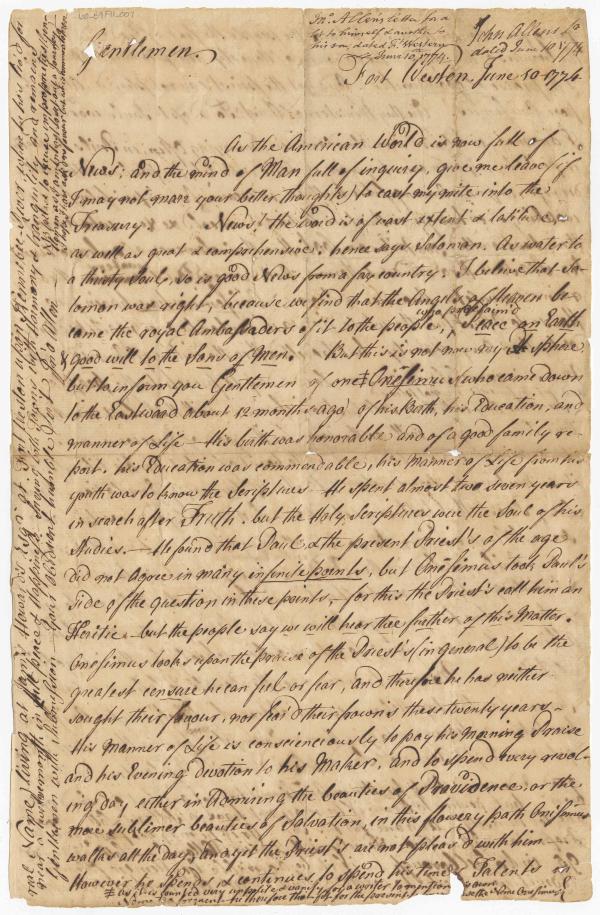 Gentlemen.
Jno. Allen's letter for a
to himself & another to
his son, dated Ft. Western
June 10, 1774.
John Allen's
dated June 10 1774
Fort Western June 10-1774
As the American World is now full of
News; and the mind of Man full of inquiry, give me leave (if
I may not marr your better thoughts) to cast my mite into the
Treasury News! the word is of vast extent & latitude,
as well as great & comprehensive. hence says Solomon. As water to
a thirsty Soul, so is good News from a far country. I belive that So-
lomon was right, because we find that the Angels of Heaven be-
came the royal Ambassaders of it to the people, who proclaim'd Peace on Earth
& good will to the Sons of Men. But this is not now my Sphere
but to inform you Gentlemen of one ‡ Onesimus who came down
to the Eastward about 12 months ago, of his Birth, his Education, and
manner of Life — His birth was honorable and of a good family re-
port. his Education was commendable, his Manner of Life from his
youth was to know the Scriptures — He spent almost two seven years
in search after Truth. but the Holy Scriptures were the Soul of his
studies. — He found that Paul & the present Priest's of the age
did not Agree in many infinite points, but Onesimus took Paul's
side of the question in these points, — for this the Priest's call him an
Heritic — but the people say we will hear thee further of this Matter.
Onesimus looks upon the praise of the Priest's (in general) to be the
greatest censure he can feel or fear, and therefore he has neither
sought their favour, nor fear'd their frowns these twenty years —
His Manner of Life is conscienciously to pay his Morning Praise
and his Evening Devotion to his Maker, and to spend every revol-
ing day either in Admiring the beauties of Providence, or the
more sublimer beauties of Salvation, in this flowery path Onesimus
walks all the day, and yet the Priest's are not pleas'd with him —
However he spends & continues to spend his time & Talents on
‡ As it is counted very unpolite & vanity for a writer to mention his more
Name at present he therefore that for the present the Name Onesimus
real Name) living at James Howards Esqr. at Fort Western upon Kennebec River
Gentlemen with submission — your obedient humble Servt. J. A Allen